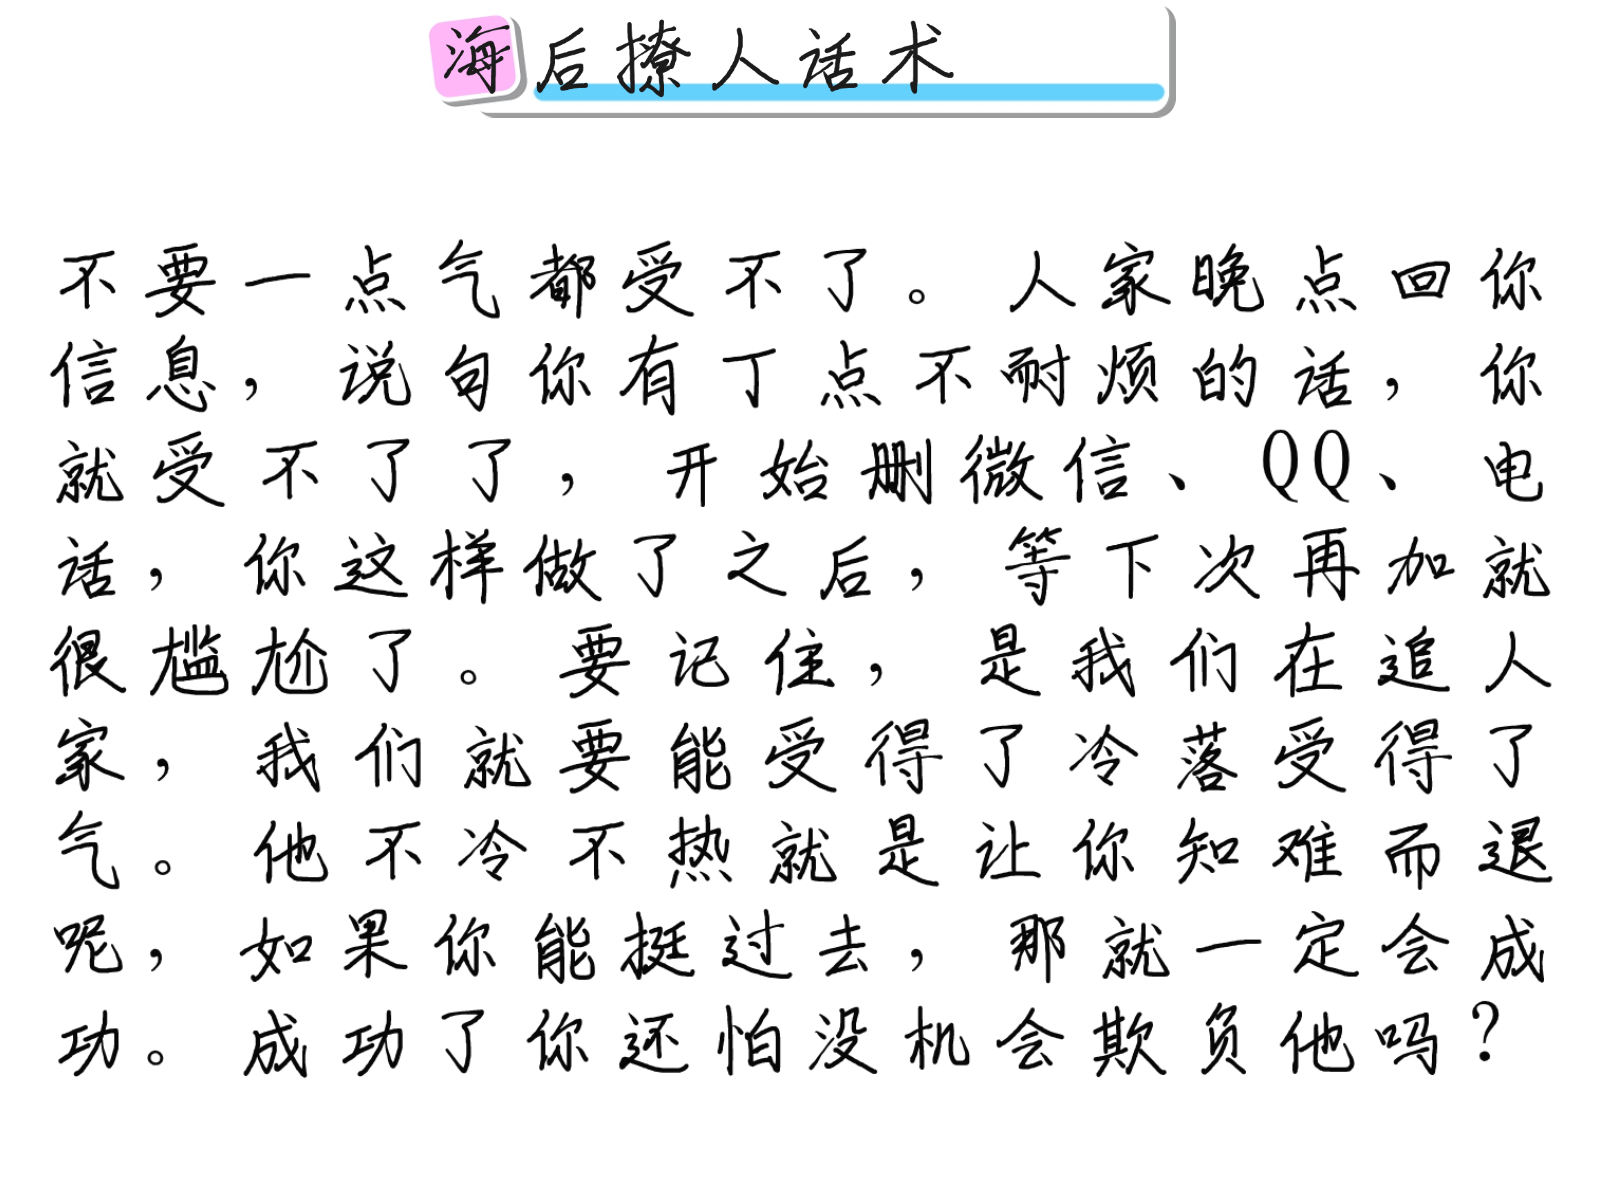 海后撩人话术
不要一点气都受不了。人家晚点回你
信息，说句你有丁点不耐烦的话，你
就受不了了，开始删微信、QQ、电
话，你这样做了之后，等下次再加就
很尴尬了。要记住，是我们在追人
家，我们就要能受得了冷落受得了
气。他不冷不热就是让你知难而退
呢，如果你能挺过去，那就一定会成
功。成功了你还怕没机会欺负他吗？